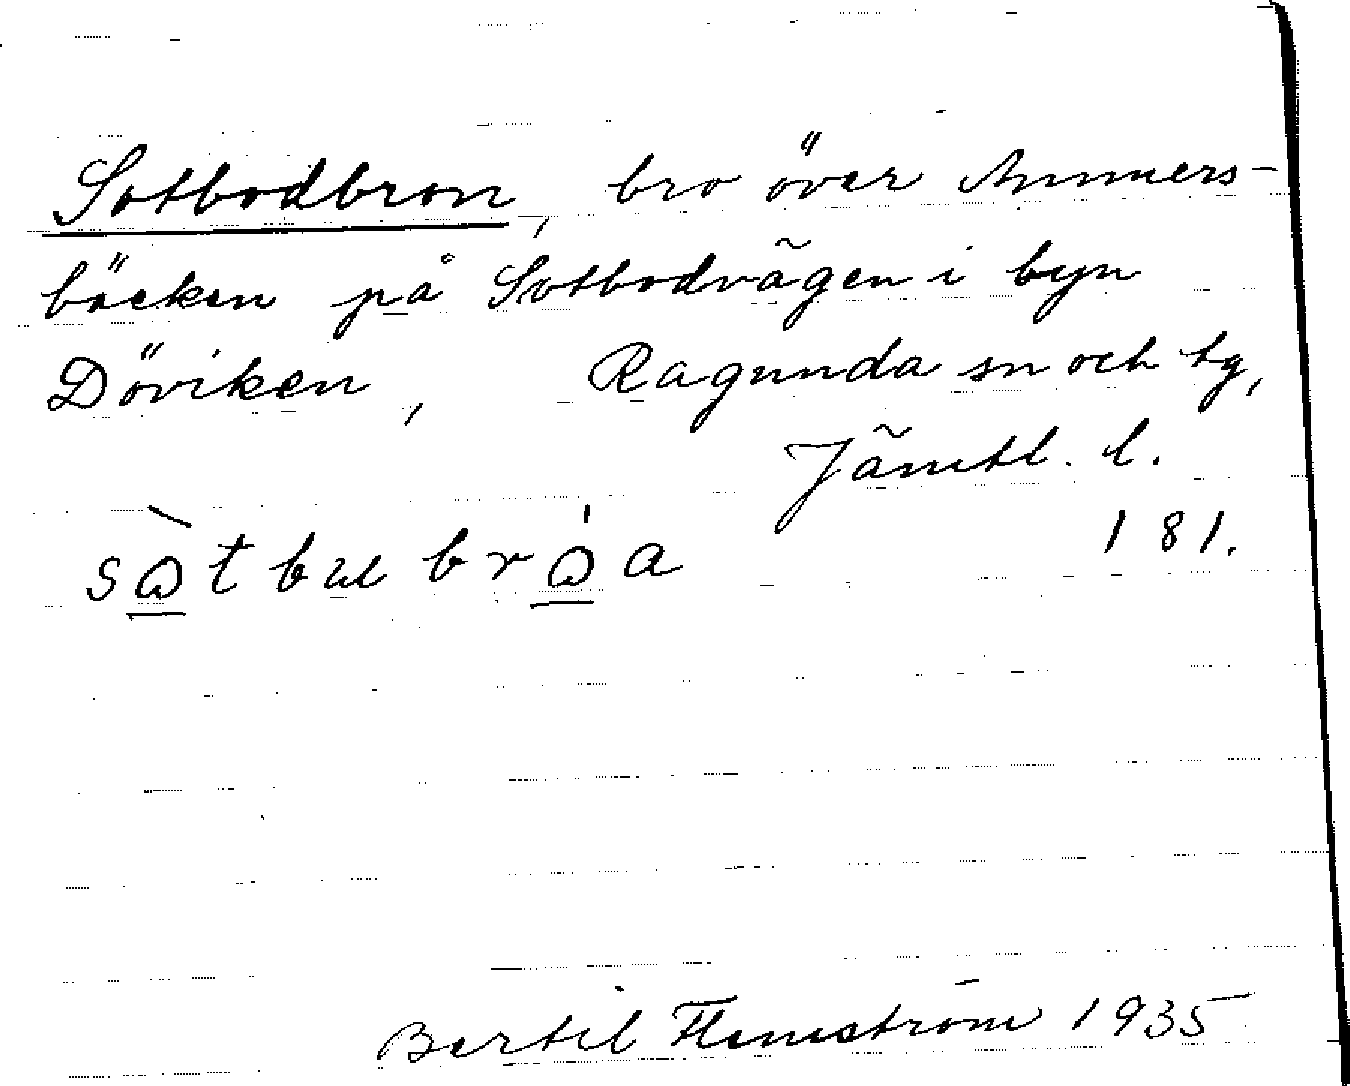 Sotbodbron, bro över Ammers-
bäcken på Sotbodvägen i byn
Döviken, Ragunda sn och tg,
Jämtl. l.
181.
Bertil Flemström 1935